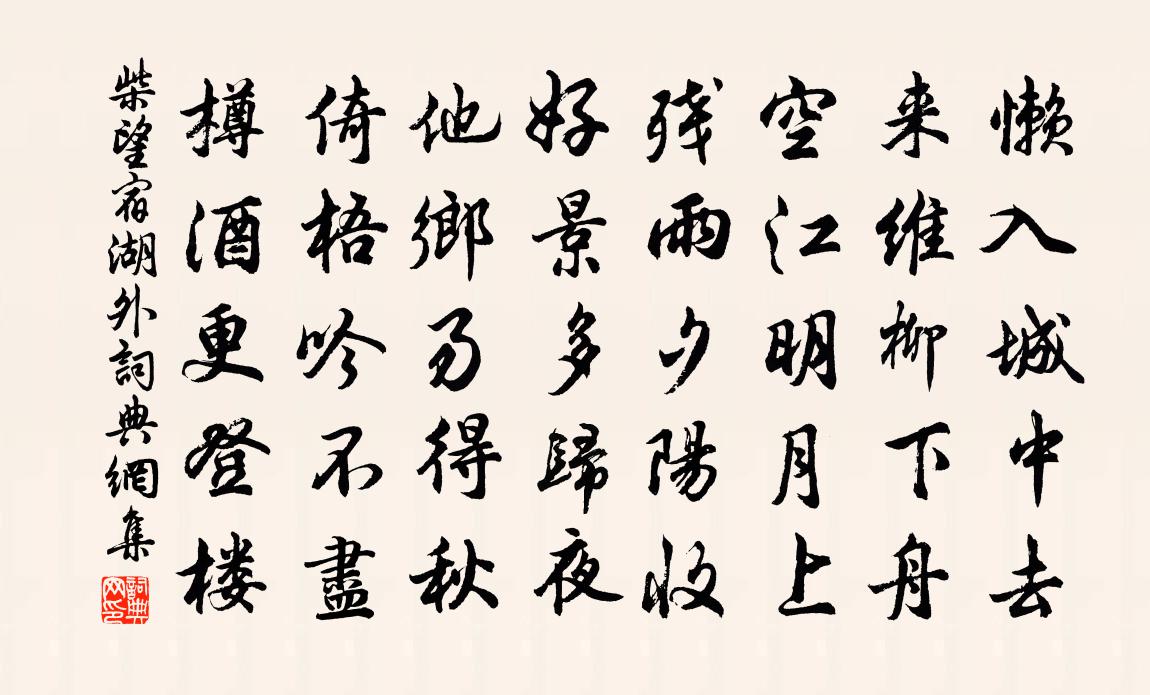 懒入城中去
来維柳下舟
空江明月上
残雨夕陽收
好景多歸夜
他鄉易得秋
倚梧吟不盡
樽酒更登楼
柴望宿湖外詞典網集
詞典网印